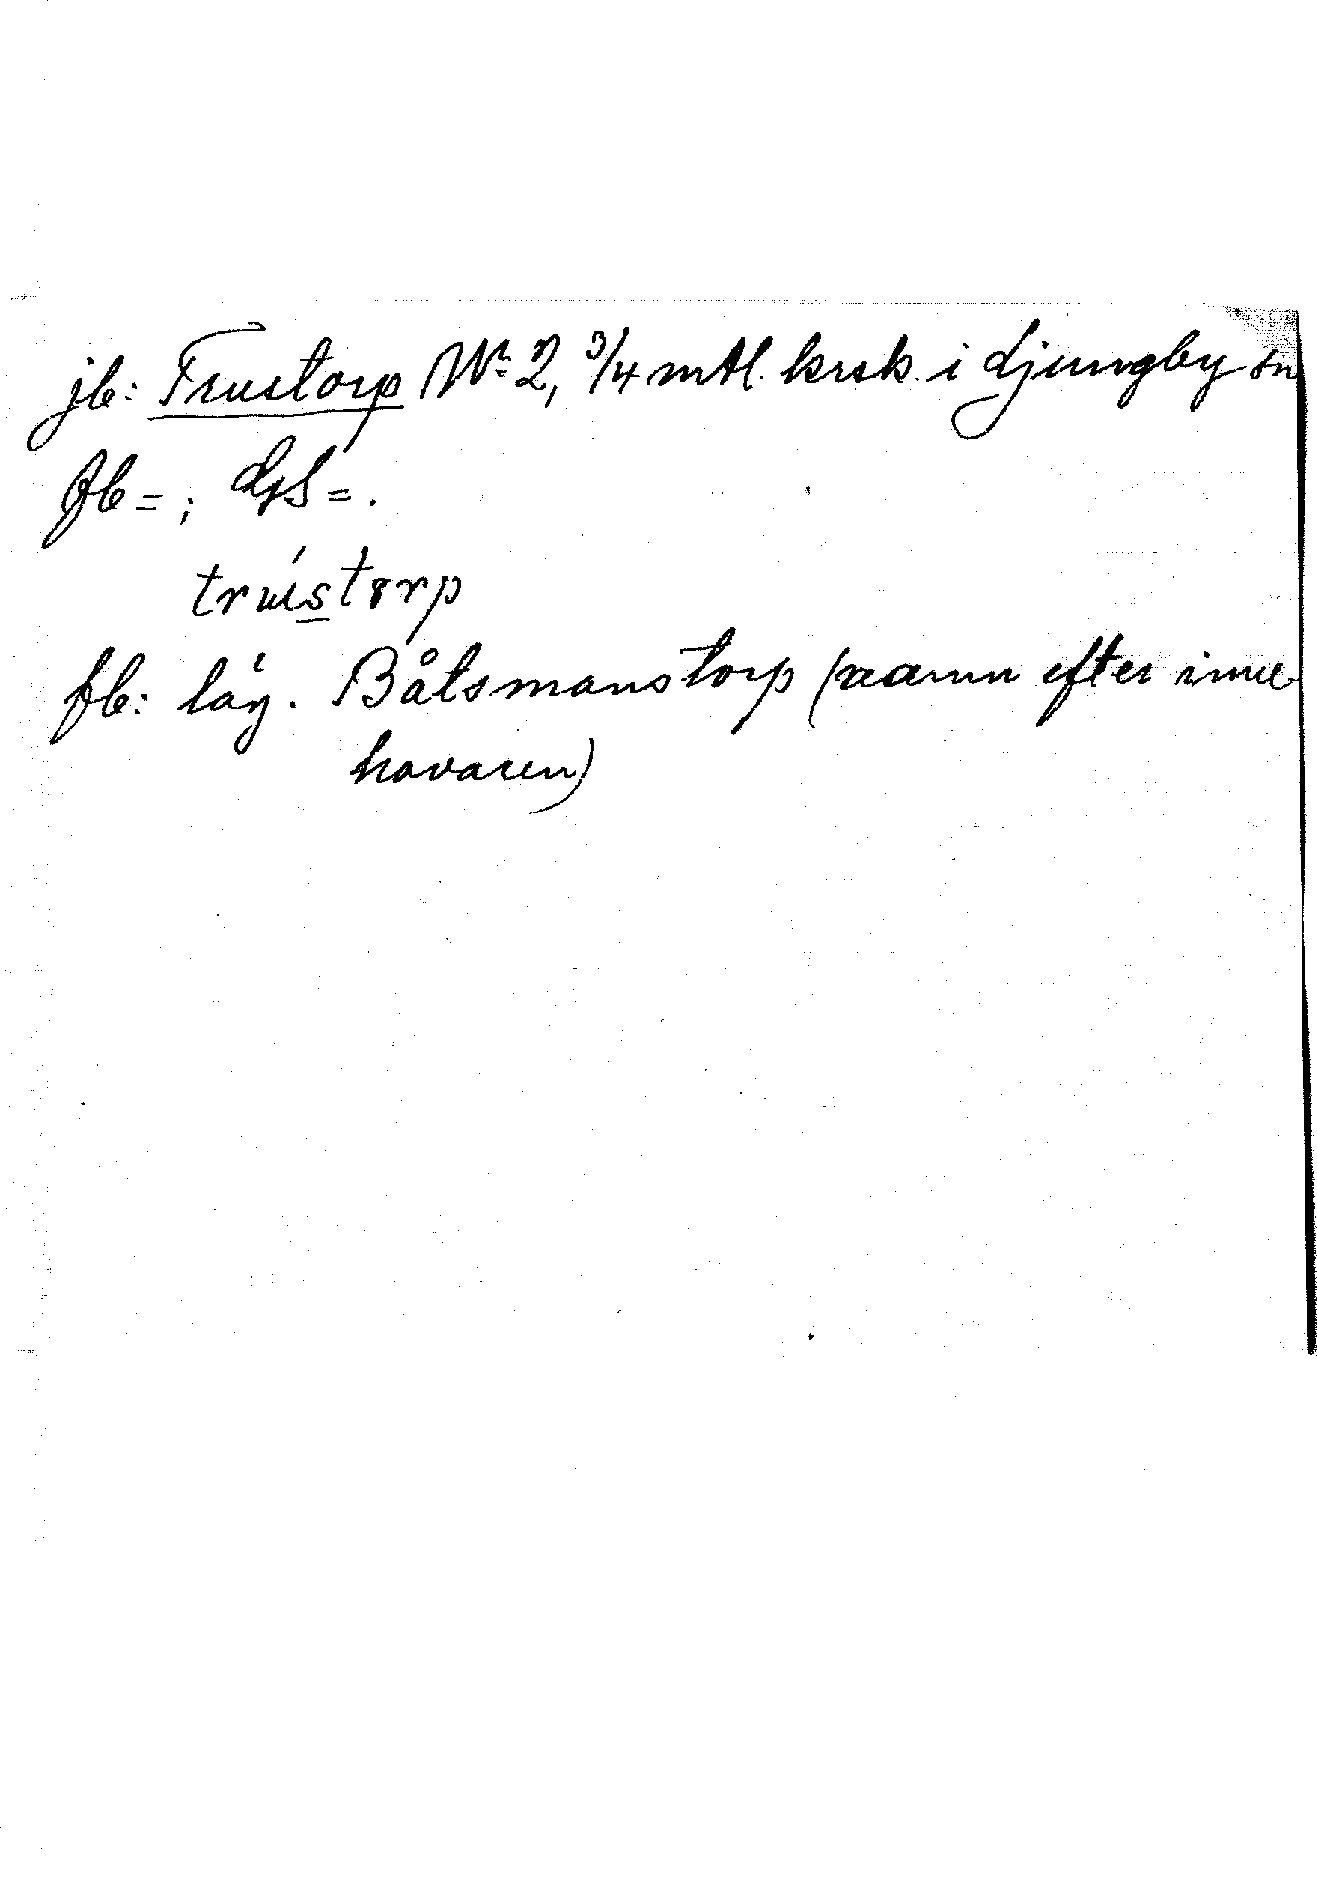 jb: Trustorp Nr 2, 3/4 mtl. krsk. i Ljungby sn
fb = ; GS = .
trústorp
fb: läg. Båtsmanstorp (namn efter inne
havaren)